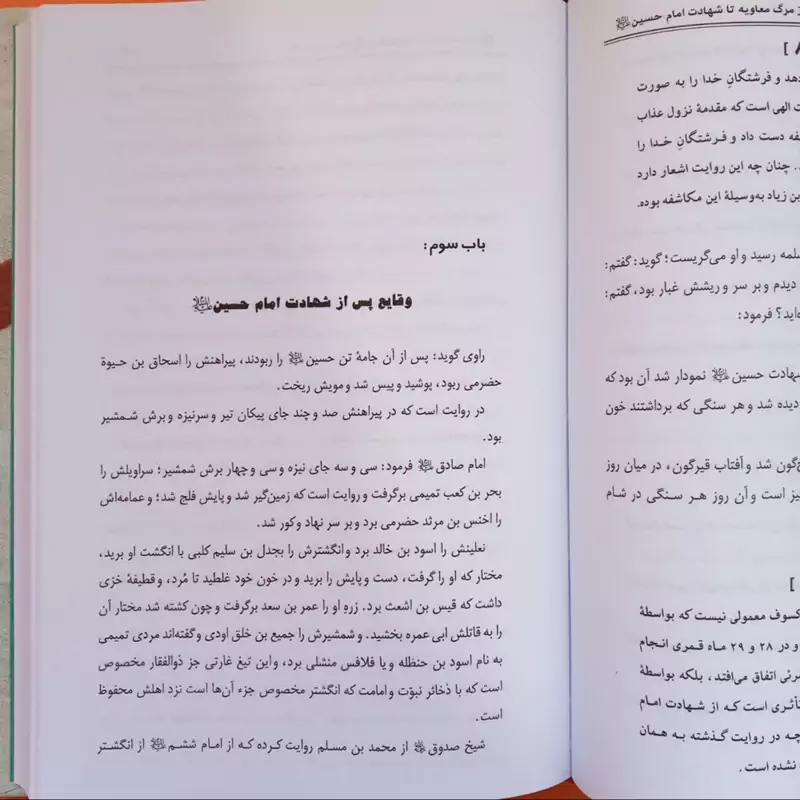 ز مرگ معاویه تا شهادت امام حسین
]
دهد و فرشتگانِ خدا را به صورت
ت الهی است که مقدمهٔ نزول عذاب
فه دست داد و فرشتگانِ خدا را
. چنان چه این روایت اشعار دارد
بن زیاد به‌وسیلهٔ این مکاشفه بوده.
سلمه رسید و او می‌گریست؛ گوید: گفتم:
دیدم و بر سر و ریشش غبار بود، گفتم:
ه‌اید؟ فرمود:
شهادت حسین نمودار شد آن بود که
دیده شد و هر سنگی که برداشتند خون
گون شد و آفتاب قیرگون، در میان روز
یز است و آن روز هر سنگی در شام
]
کسوف معمولی نیست که بواسطهٔ
و در ۲۸ و ۲۹ ماه قمری انجام
مرئی اتفاق می‌افتد، بلکه بواسطهٔ
تأثری است که از شهادت امام
چه در روایت گذشته به همان
نشده است.
باب سوم:
وقایع پس از شهادت امام حسین
راوی گوید: پس از آن جامهٔ تن حسین را ربودند، پیراهنش را اسحاق بن حیوة
حضرمی ربود، پوشید و پیس شد و مویش ریخت.
در روایت است که در پیراهنش صد و چند جای پیکان تیر و سرنیزه و برش شمشیر
بود.
امام صادق فرمود: سی و سه جای نیزه و سی و چهار برش شمشیر؛ سراویلش را
بحر بن کعب تمیمی برگرفت و روایت است که زمین‌گیر شد و پایش فلج شد؛ و عمامه‌اش
را اخنس بن مرثد حضرمی برد و بر سر نهاد و کور شد.
نعلینش را اسود بن خالد برد و انگشترش را بجدل بن سلیم کلبی با انگشت او برید،
مختار که او را گرفت، دست و پایش را برید و در خون خود غلطید تا مُرد، و قطیفهٔ خزی
داشت که قیس بن اشعث برد. زرهِ او را عمر بن سعد برگرفت و چون کشته شد مختار آن
را به قاتلش ابی عمره بخشید. و شمشیرش را جمیع بن خلق اودی و گفته‌اند مردی تمیمی
به نام اسود بن حنظله و یا فلافس منشلی برد، و این تیغ غارتی جز ذوالفقار مخصوص
است که با ذخائر نبوّت و امامت که انگشتر مخصوص جزء آن‌ها است نزد اهلش محفوظ
است.
شیخ صدوق از محمد بن مسلم روایت کرده که از امام ششم از انگشتر